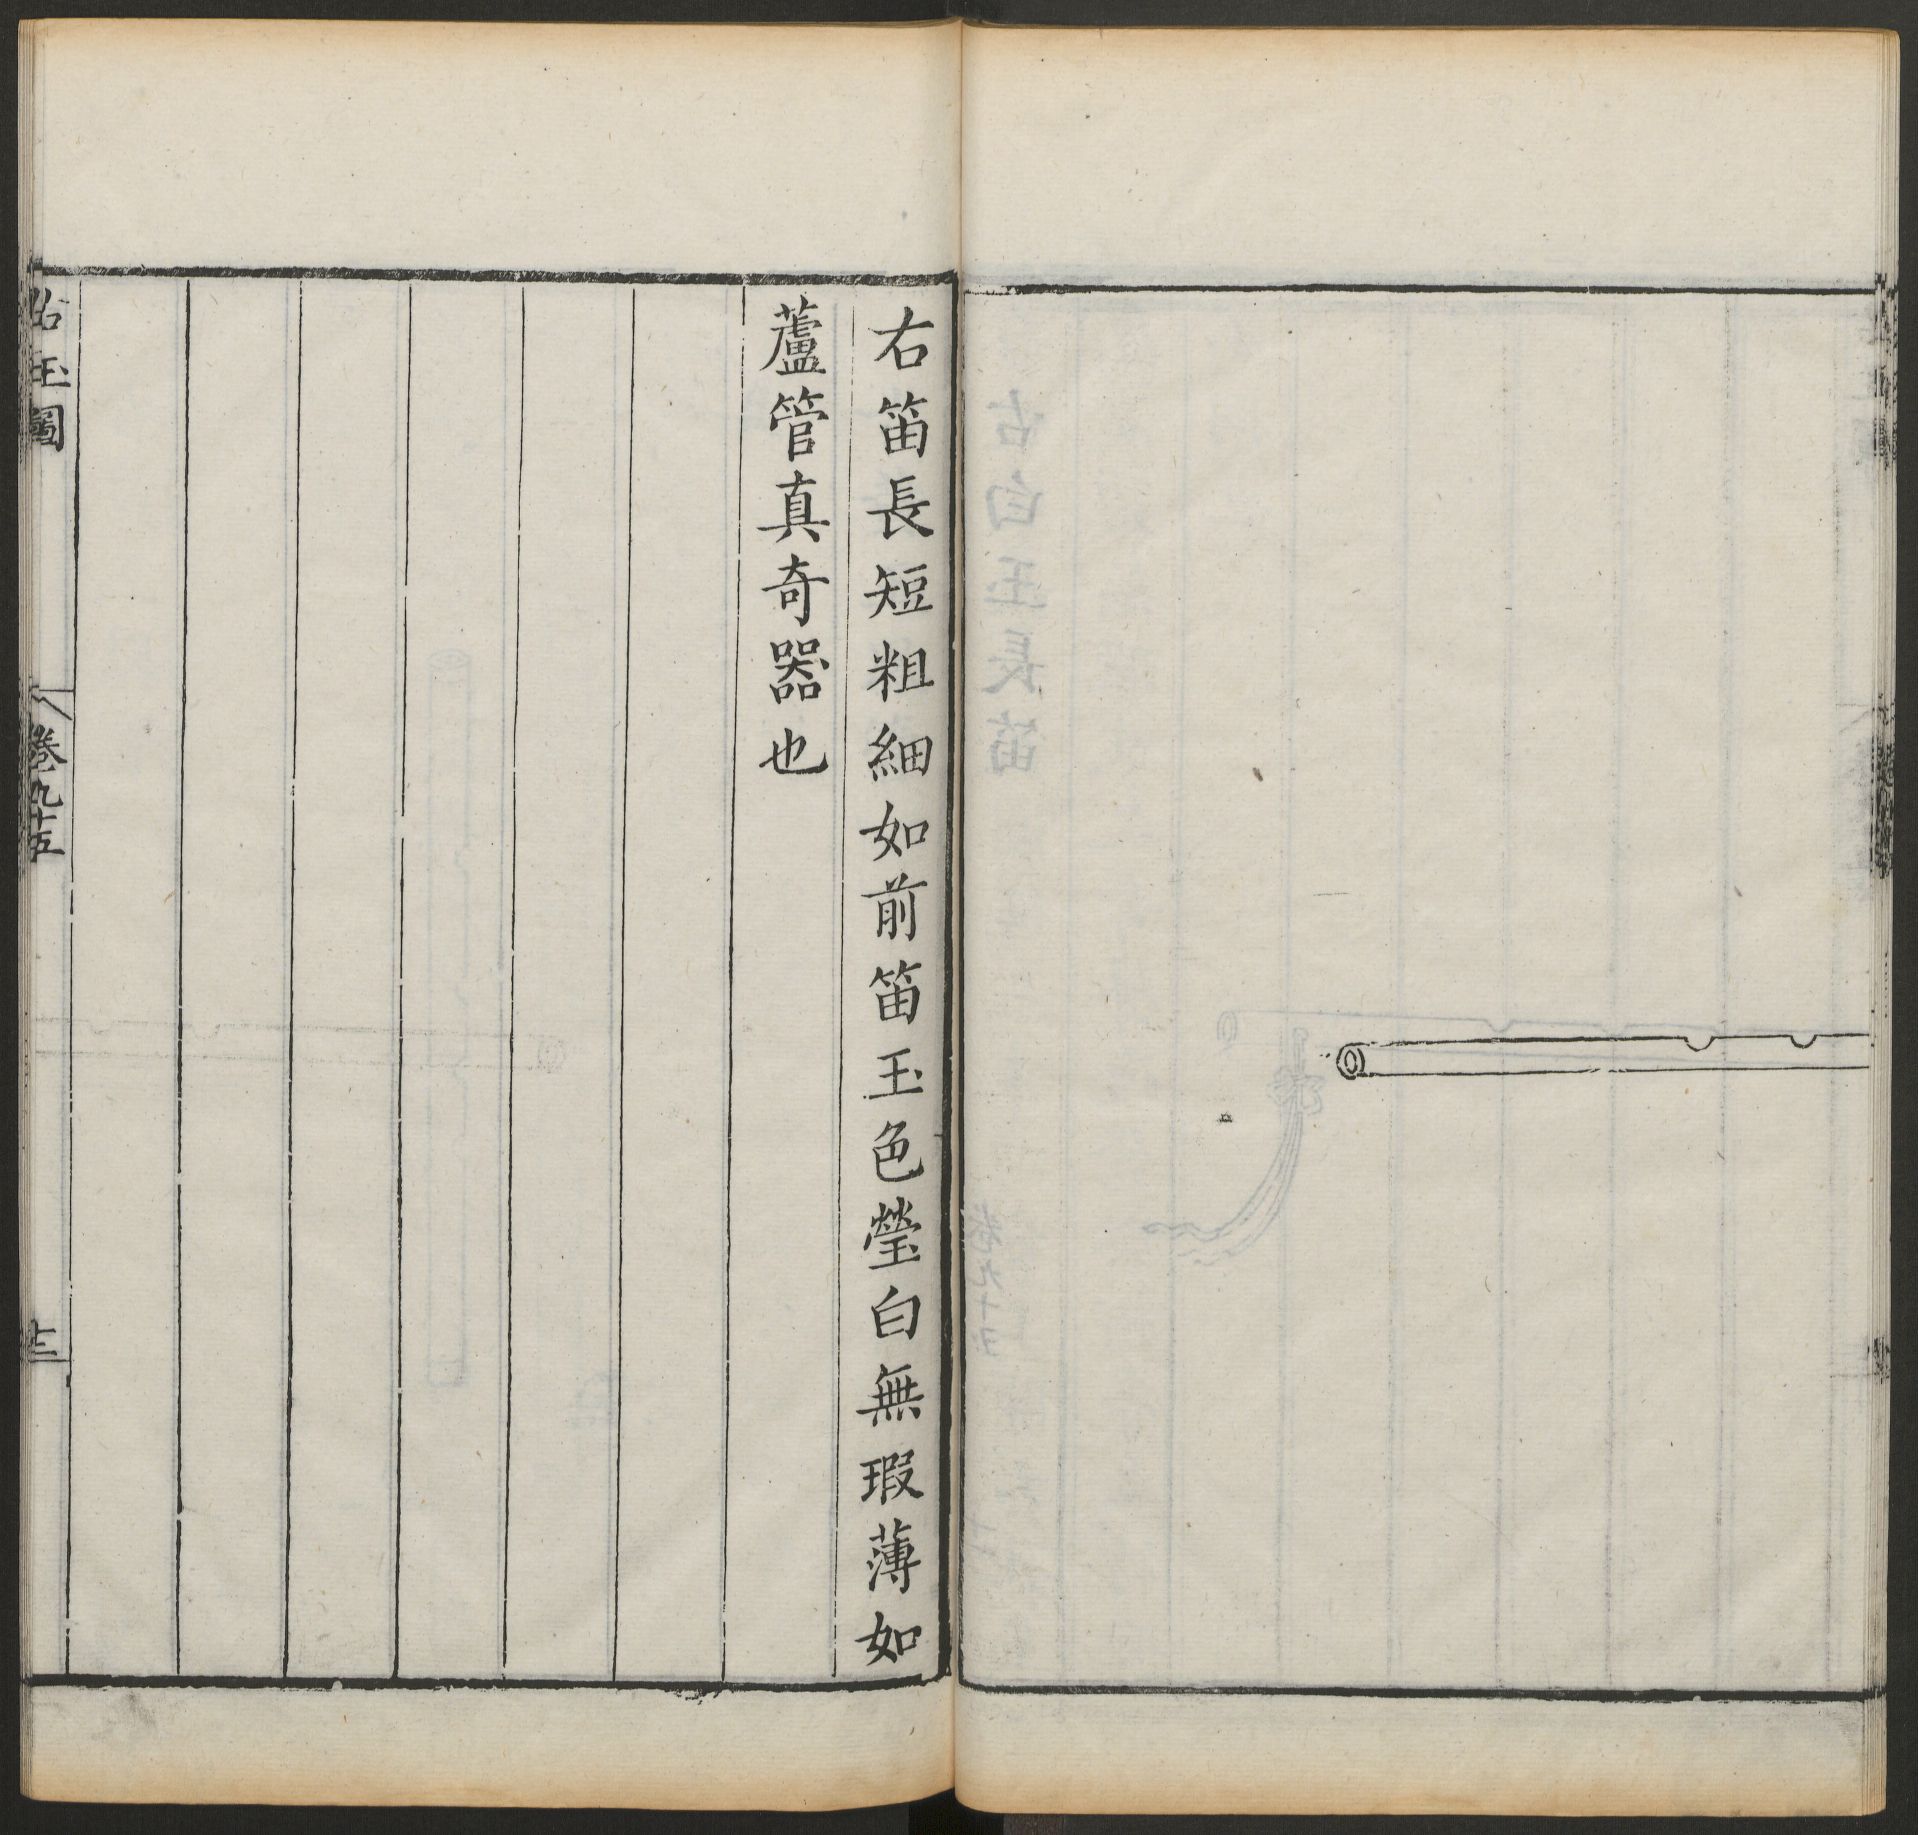 右笛長短粗細如前笛玉色瑩白無瑕薄如
蘆管真奇器也
玉圖
卷九十五